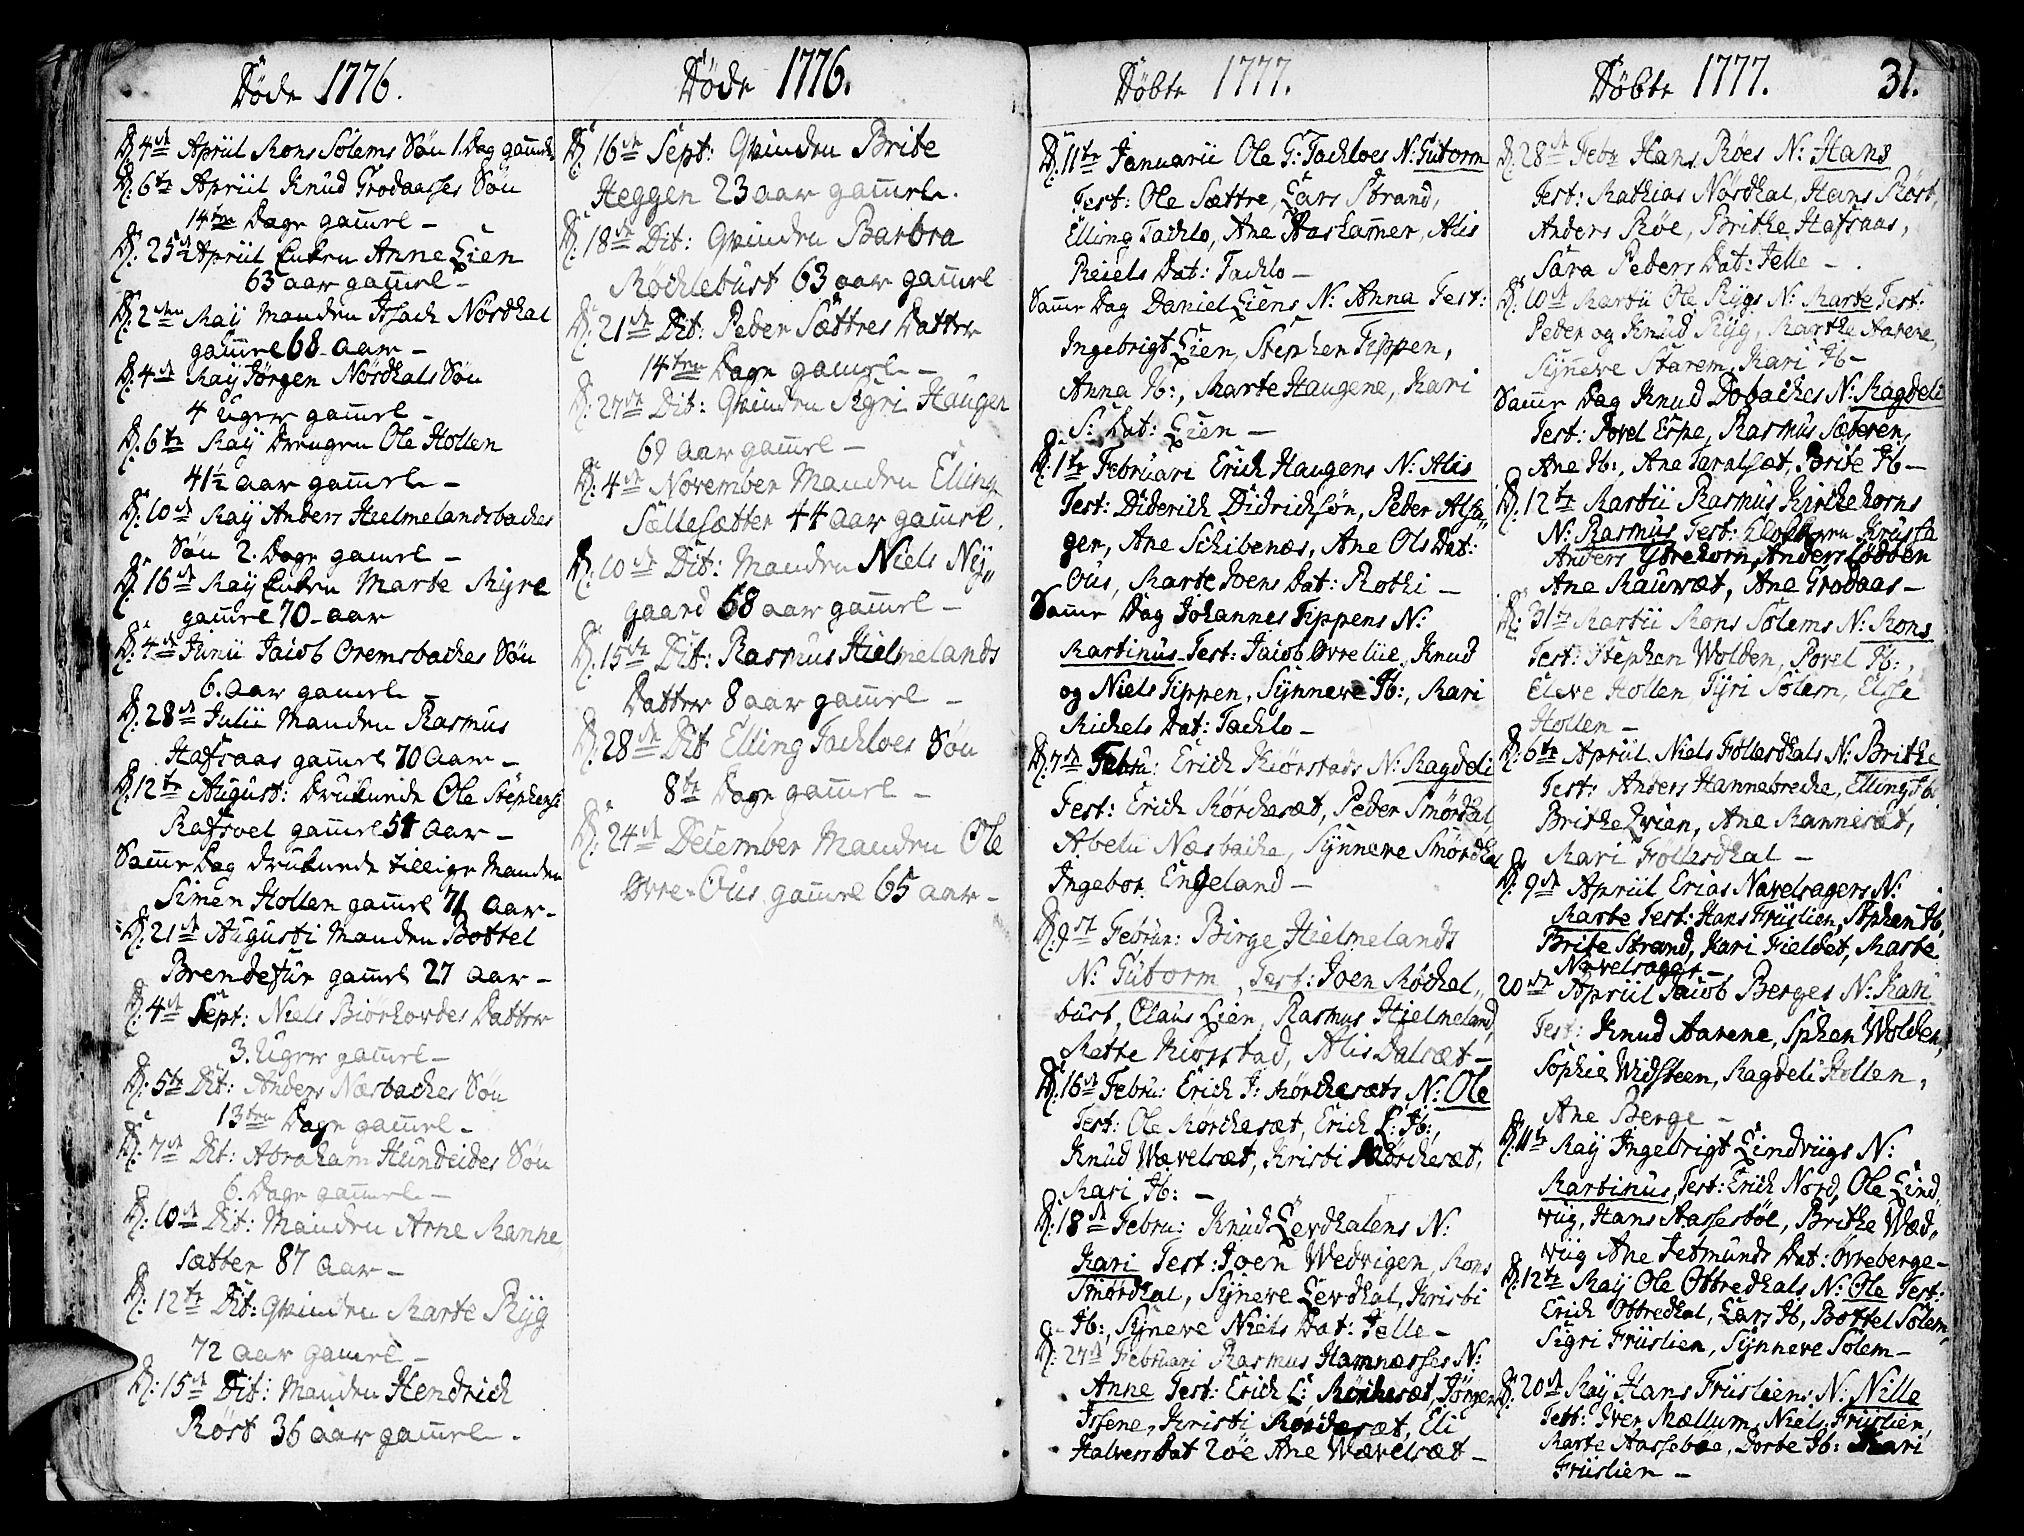 Døde 1776.
D: 4de Apriil Mons Solems Søn 1. Dag gamel
D: 6te Apriil Knud Grodaasses Søn
14ten Dage gamel –
D: 25de Apriil Enken Anne Lien
63 aar gamel –
D: 2den Maij Manden Isach Nørdhal
gamel 68 aar –
D: 4de Maij Jørgen Nørdhals Søn
4 Uger gamel –
D: 6te Maij Drengen Ole Hollen
41½ aar gamel –
D: 10de Maij Anders Hielmelandsbaches
Søn 2. Dage gamel –
D: 16de Maij Enken Marte Myre
gamel 70 aar
D: 4de Junii Jacob Oremsbaches Søn
6. aar gamel –
D: 28de Julii Manden Rasmus
Hafsaas gamel 70 aar –
D: 12te August: Drukende Ole Stephens:
Rafsvel gamel 54 aar –
Same Dag drukende tillige Manden
Simen Hollen gamel 71 aar –
D: 21de Augusti Manden Bottel
Brendefur gamel 27 aar –
D: 4de Sept: Niels Biørhovdes Datter
3. Uger gamel –
D: 5te Dit: Anders Næsbaches Søn
13ten Dage gamel –
D: 7de Dit: Abraham Hundeides Søn
6. Dage gamel –
D: 10de Dit: Manden Arne Manne
sætter 87 aar –
D: 12te Dit: Qvinden Marte Ryg
72 aar gamel –
D: 15de Dit: Manden Hendrich
Røst 36 aar gamel.
Døde 1776.
D: 16de Sept: Qvinden Brite
Heggen 23 aar gamel.
D: 18de Dit: Qvinden Barbra
Møchlebust 63 aar gamel
D: 21de Dit: Peder Sættres Datter
14ten Dage gamel –
D: 27de Dit: Qvinden Sigri Haugen
60 aar gamel –
D: 4de November Manden Elling
Sællesætter 44 aar gamel.
D: 10de Dit: Manden Niels Nÿ„
gaard 68 aar gamel –
D: 15de Dit: Rasmus Hielmelands
Datter 8 aar gamel –
D: 28de Dit Elling Tachloes Søn
8te Dage gamel –
D: 24de December Manden Ole
Øvre-Ous gamel 65 aar –
Døbte 1777.
D: 11te Januarii Ole G: Tachloes N: Gutorm
Test: Ole Sættre, Lars Strand,
Elling Tachlo, Ane Aaskamer, Alis
Reiels Dat: Tachlo –
Same Dag Daniel Liens N: Anna Test:
Ingebrigt Lien, Stephen Tippen,
Anna Ib:, Marte Haugene, Kari
S: Dat: Lien –
D: 1te Februari Erich Haugens N: Alis
Test: Diderich Didrichsøn, Peder Alsa„
ger, Ane Schibenæs, Ane Ols Dat:
Ous, Marte Joens Dat: Rothi –
Same Dag Johannes Tippens N:
Martinus Test: Jacob Øvrelie, Knud
og Niels Tippen, Synneve Ib:, Mari
Michels Dat: Tachlo –
D: 7de Febru: Erich Kiørstads N: Magdeli
Test: Erich Mørchesæt, Peder Smørdhal
Abelu Næsbache, Synneve Smørdhal
Ingebor. Engeland –
D: 9de Februr: Birge Hielmelands
N: Gutorm, Test: Joen Møchel„
bust, Claus Lien, Rasmus Hielmeland,
Mette Kiørstad, Alis Dalsæt –
D: 16de Febru: Erich J: Mørchesæts N: Ole
Test: Ole Mørchesæt, Erich L: Ib:,
Knud Wævelsæt, Kristi Mørchesæt,
Mari Ib: –
D: 18de Febru: Knud Levdhalens N:
Kari Test: Joen Wedvigen, Mons
Smørdhal, Synneve Levdhal, Kristi
Ib:, Syneve Niels Dat: Jelle –
D: 24de Februari Rasmus Hamnæsses N:
Anne Test: Erich L: Mørchesæt, Jørgen
Issene, Kristi Mørchesæt, Eli
Halvers Dat Løe Ane Wævelsæt –
Døbte 1777. 31.
D: 28de Febr Hans Røes N: Hans
Test: Mathias Nørdhal, Hans Røst,
Anders Røe, Brithe Hafsaas,
Sara Peders Dat: Jelle –
D: 10de Martii Ole Rygs N: Marte Test:
Peder og Knud Ryg, Marthe Aarene,
Synneve Starem, Kari Ib –
Same Dag Knud Dobaches N: Magdeli
Test: Povel Espe, Rasmus Sæteren,
Ane Ib:, Ane Taralsæt, Brite Ib –
D: 12te Martii Rasmus Kirkehorns
N: Rasmus Test: Klokkeren Krusta
Anders Ytrehorn, Anders Lødøen
Ane Rauwæt, Ane Grodaas –
D: 31te Martii Mons Solems N: Mons
Test: Stephen Wolden, Povel Ib:,
Eleve Hollen Tyri Solem, Else
Hollen –
D: 6te Apriil Niels Føllesdhals N: Brithe
Test: Anders Hannebreche, Elling Ib:
Brithe Lvien, Ane Mannesæt,
Mari Føllesdhal –
D: 9de Apriil Erias Navelsagers N:
Marte Test: Hans Friislien, Stphen Ib,
Brite Strand, Kari Fieldet, Marte
Navelsager –
20de Apriil Jacob Berges N: Kari
Test: Knud Aarene, Sphen Wolden,
Sophie Widsteen, Magdeli Hollen,
Ane Berge –
D: 11te Maij Ingebrigt Lindviigs N:
Martinus, Test: Erich Nord, Ole Lind„
viig, Hans Aassestøl, Brithe Wæd„
viig Ane Jetmunds Dat: Øvreberge –
D: 12te Maij Ole Ottredhals N: Ole Test:
Erich Ottredhal, Lars Ib, Bottel Solem
Sigri Friislien, Synneve Solem –
D: 20de Maij Hans Friisliens N: Nille
Test: Iver Mællum, Niels Friislien
Marte Aassebøe, Dorte Ib: Mari
Friislien –